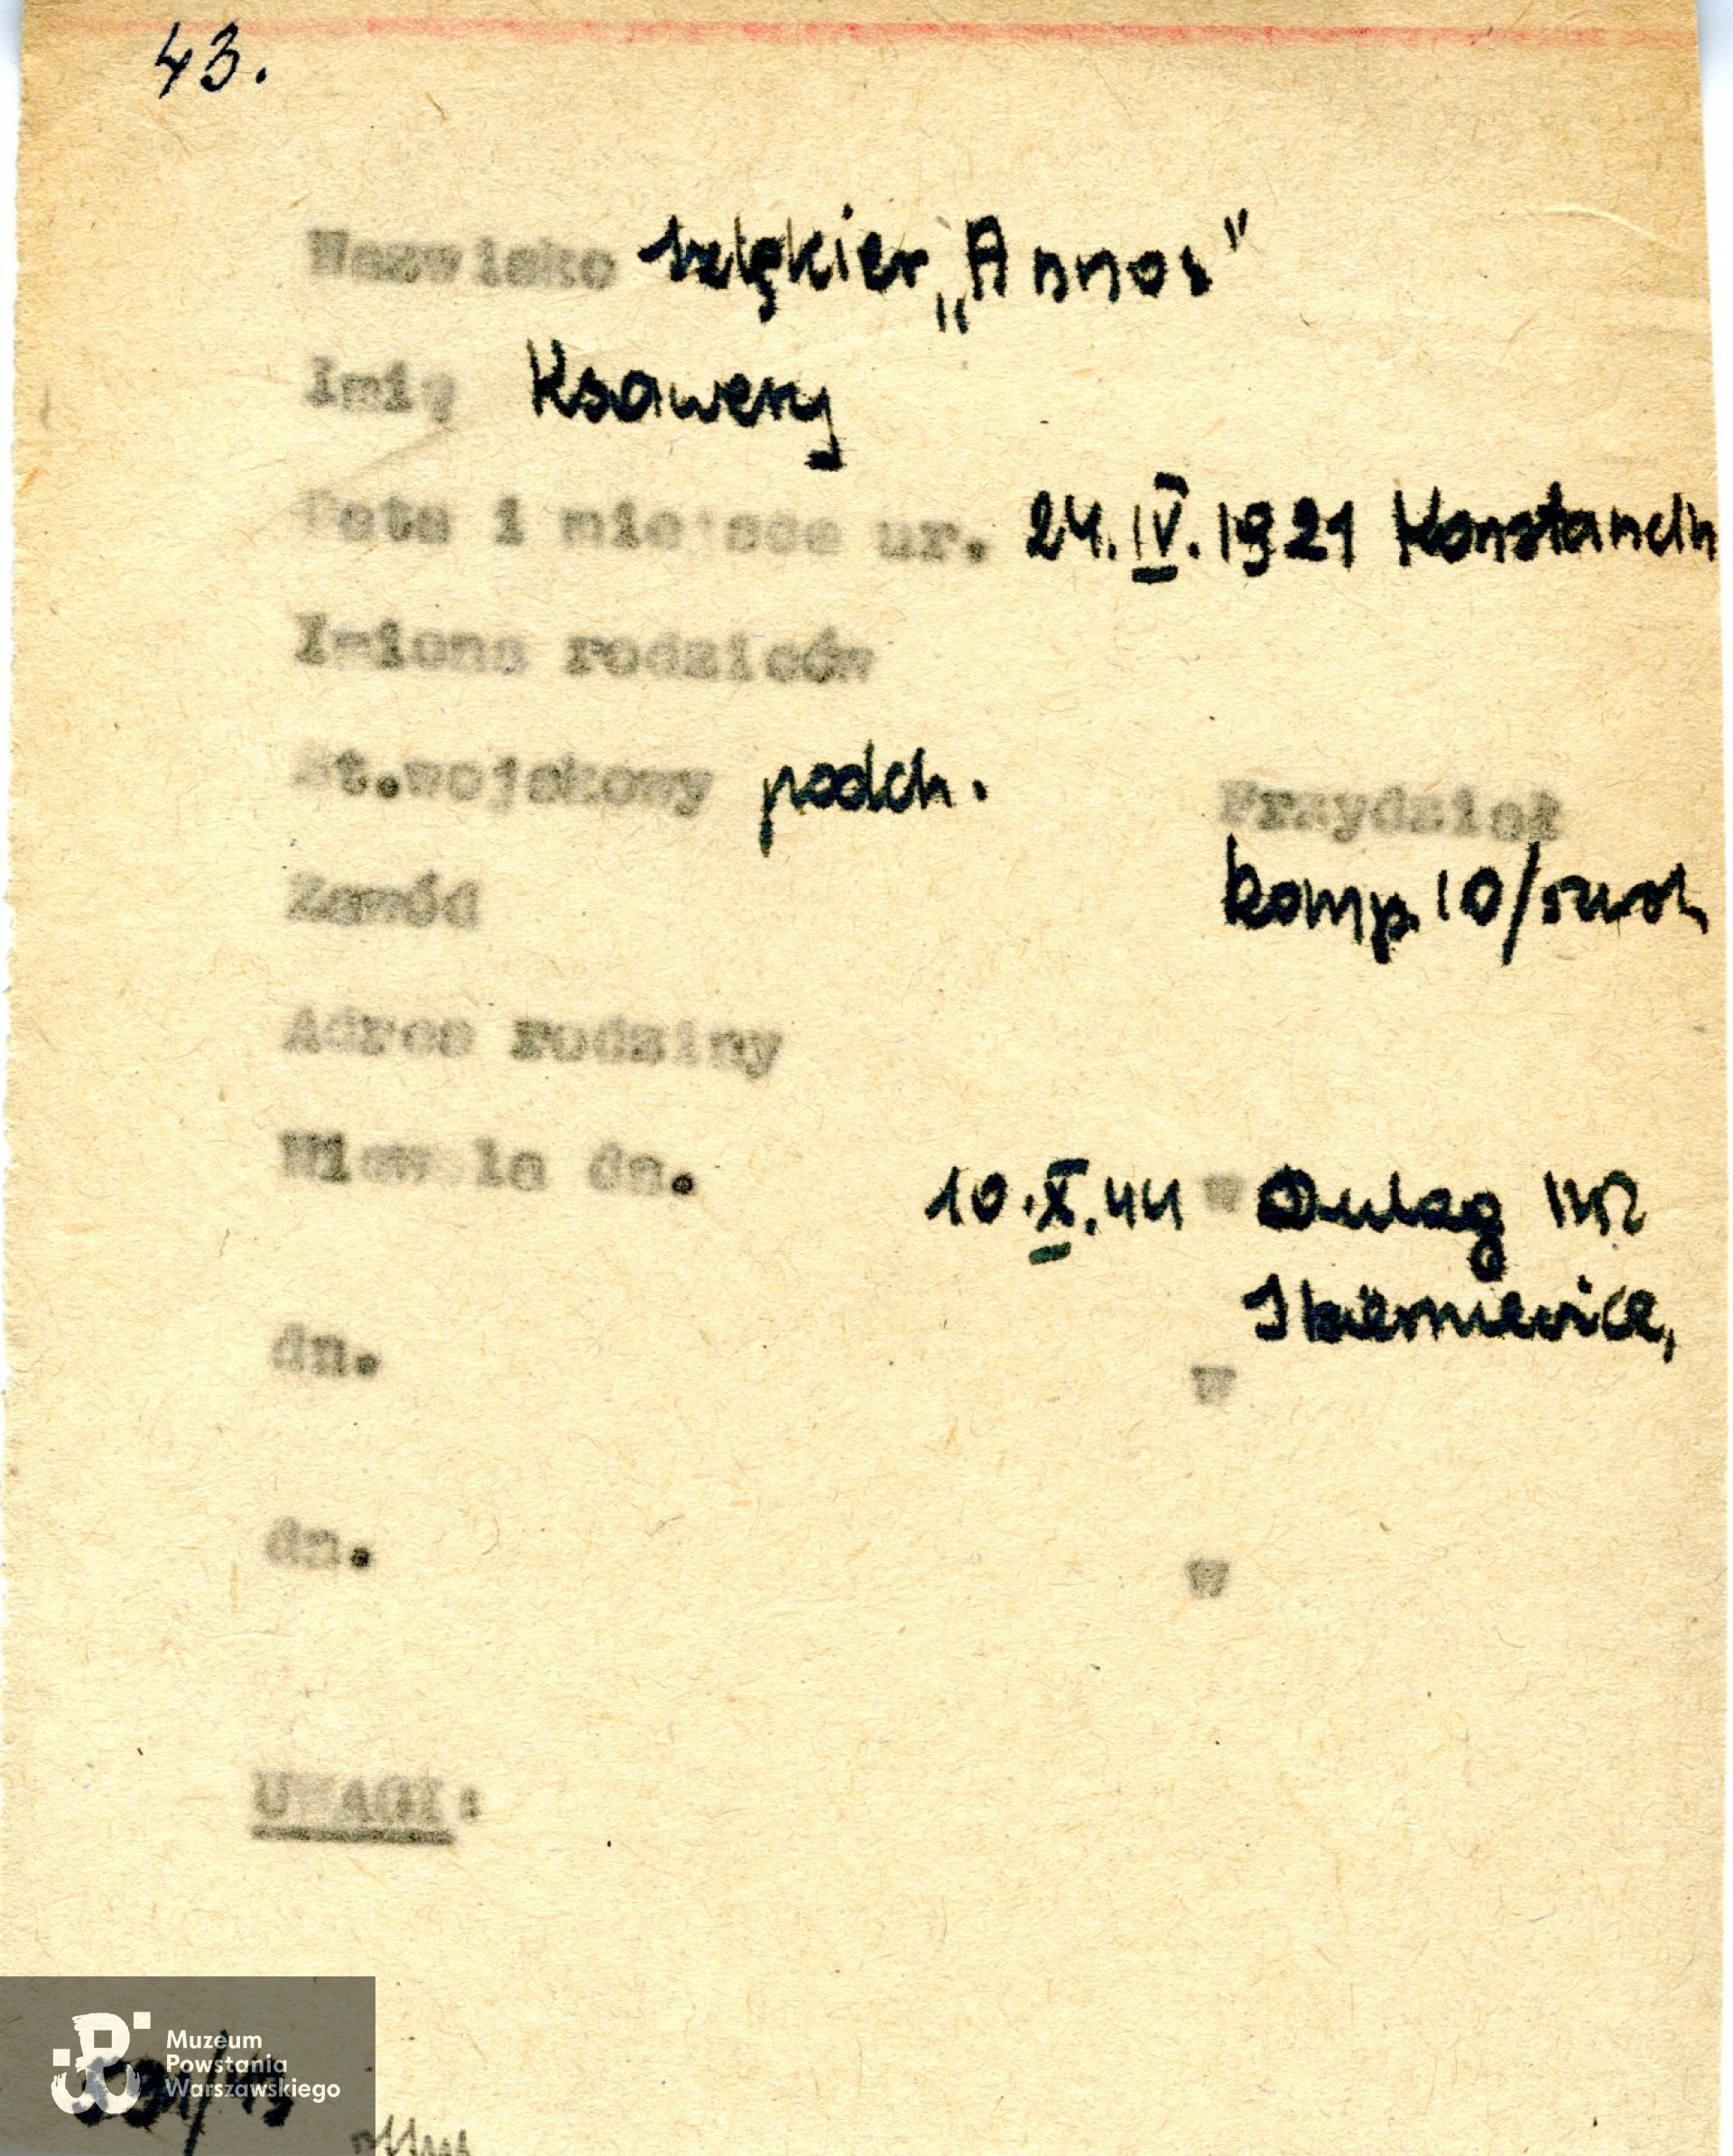 43.
Nazwisko szlękier „Annos"
Imię Ksawery
Data i miejsce ur. 24.IV.1921 Konstancin
Imiona rodziców
St.wojskowy podch.
Przydział
Zawód
komp. 10/szwol
Adres rodziny
Niewola dn. 10.X.44 w Dulag 142
Skierniewice,
dn. w
dn. w
UWAGI:
Muzeum
Powstania
Warszawskiego